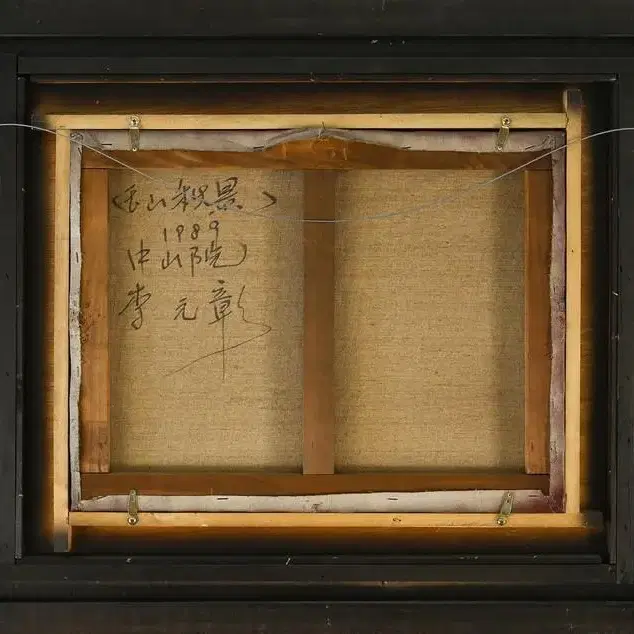 〈玉山秋景〉
1989
(中山院)
李元彰